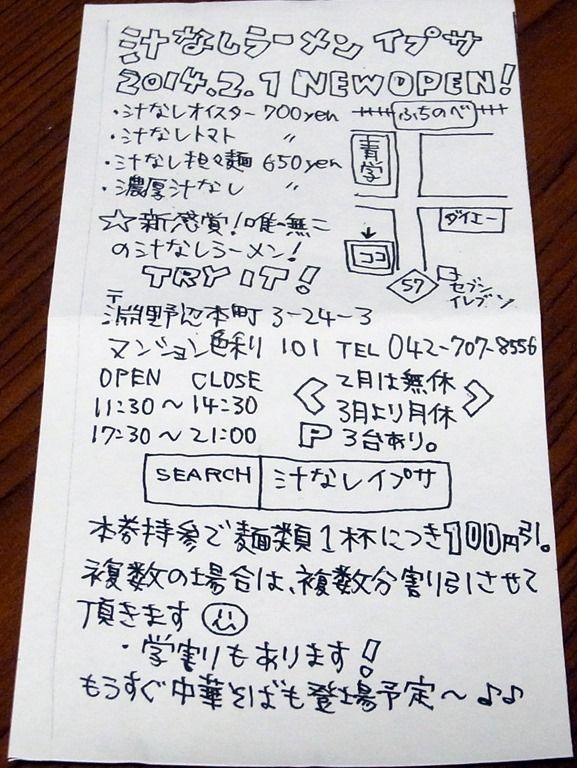 汁なしラーメン イプサ
2014.2.1 NEW OPEN!
・汁なしオイスター 700yen
・汁なしトマト 〃
・汁なし担々麺 650yen
・濃厚汁なし 〃
ふちのべ
青学
ダイエー
ココ
57
セブン
イレブン
☆新感覚!唯一無二
の汁なしラーメン!
TRY IT!
〒
淵野辺本町 3-24-3
マンション色利 101 TEL 042-707-8556
OPEN CLOSE
11:30〜14:30
17:30〜21:00
2月は無休
3月より月休
P 3台あり。
SEARCH 汁なしイプサ
本券持参で麺類1杯につき100円引。
複数の場合は、複数分割り引させて
頂きます
・学割りもあります!
もうすぐ中華そばも登場予定〜♪♪